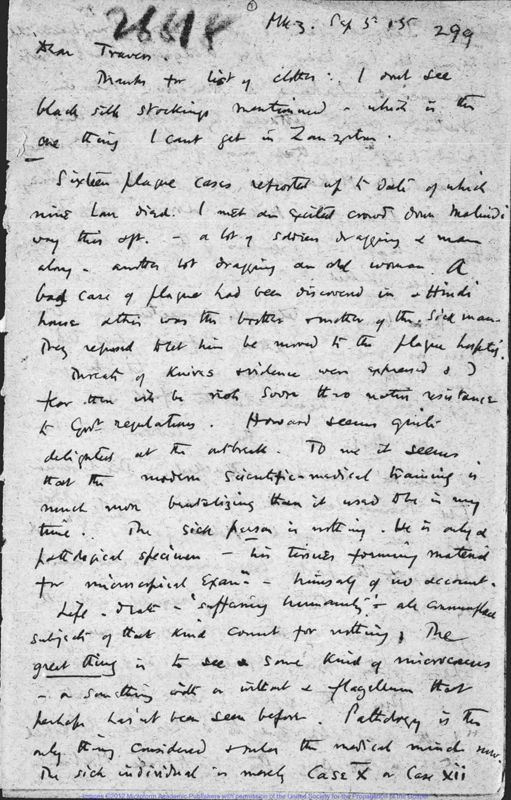 ①
26618
Mkz. Sep 5. 05
299
Dear Travers.
Thanks for list of clothes: I dont see
black silk stockings mentioned - which is the
one thing I cant get in Zanzibar.
Sixteen plague cases reported up to date of which
nine have died. I met an excited crowd down Malindi
way this aft. - a lot of soldiers dragging a man
along - another lot dragging an old woman. A
bad case of plague had been discovered in a Hindi
house & this was the brother & mother of the sick man.
They refused to let him be moved to the plague hospital.
Threats of knives & violence were expressed & I
fear there will be riots soon thro native resistance
to Govt regulations. Howard seems quite
delighted at the outbreak. To me it seems
that the modern scientific-medical training is
much more brutalizing than it used to be in my
time. The sick person is nothing. He is only a
pathological specimen - his tissues forming material
for microscopical Examn - himself of no account.
Life - death - "suffering humanity" & all commonplace
subjects of that kind count for nothing, The
great thing is to see some kind of micrococcus
- or something with or without a flagellum that
perhaps has'nt been seen before. Pathology is the
only thing considered & rules the medical mind now.
The sick individual is merely Case X or Case XII
Images ©2012 Microform Academic Publishers with permission of the United Society for the Propagation of the Gospel